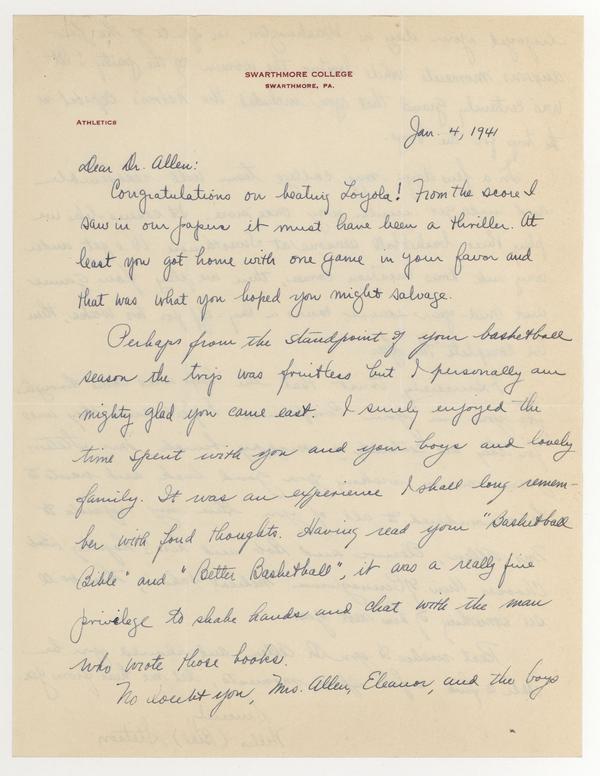 SWARTHMORE COLLEGE
SWARTHMORE, PA.
ATHLETICS
Jan. 4, 1941
Dear Dr. Allen:
Congratulations on beating Loyola! From the score I
saw in our papers it must have been a thriller. At
least you got home with one game in your favor and
that was what you hoped you might salvage.
Perhaps from the standpoint of your basketball
season the trip was fruitless but I personally am
mighty glad you came east. I surely enjoyed the
time spent with you and your boys and lovely
family. It was an experience I shall long remem-
ber with fond thoughts. Having read your "Basketball
Bible" and "Better Basketball", it was a really fine
privelege to shake hands and chat with the man
who wrote those books.
No doubt you, Mrs. Allen, Eleanor, and the boys